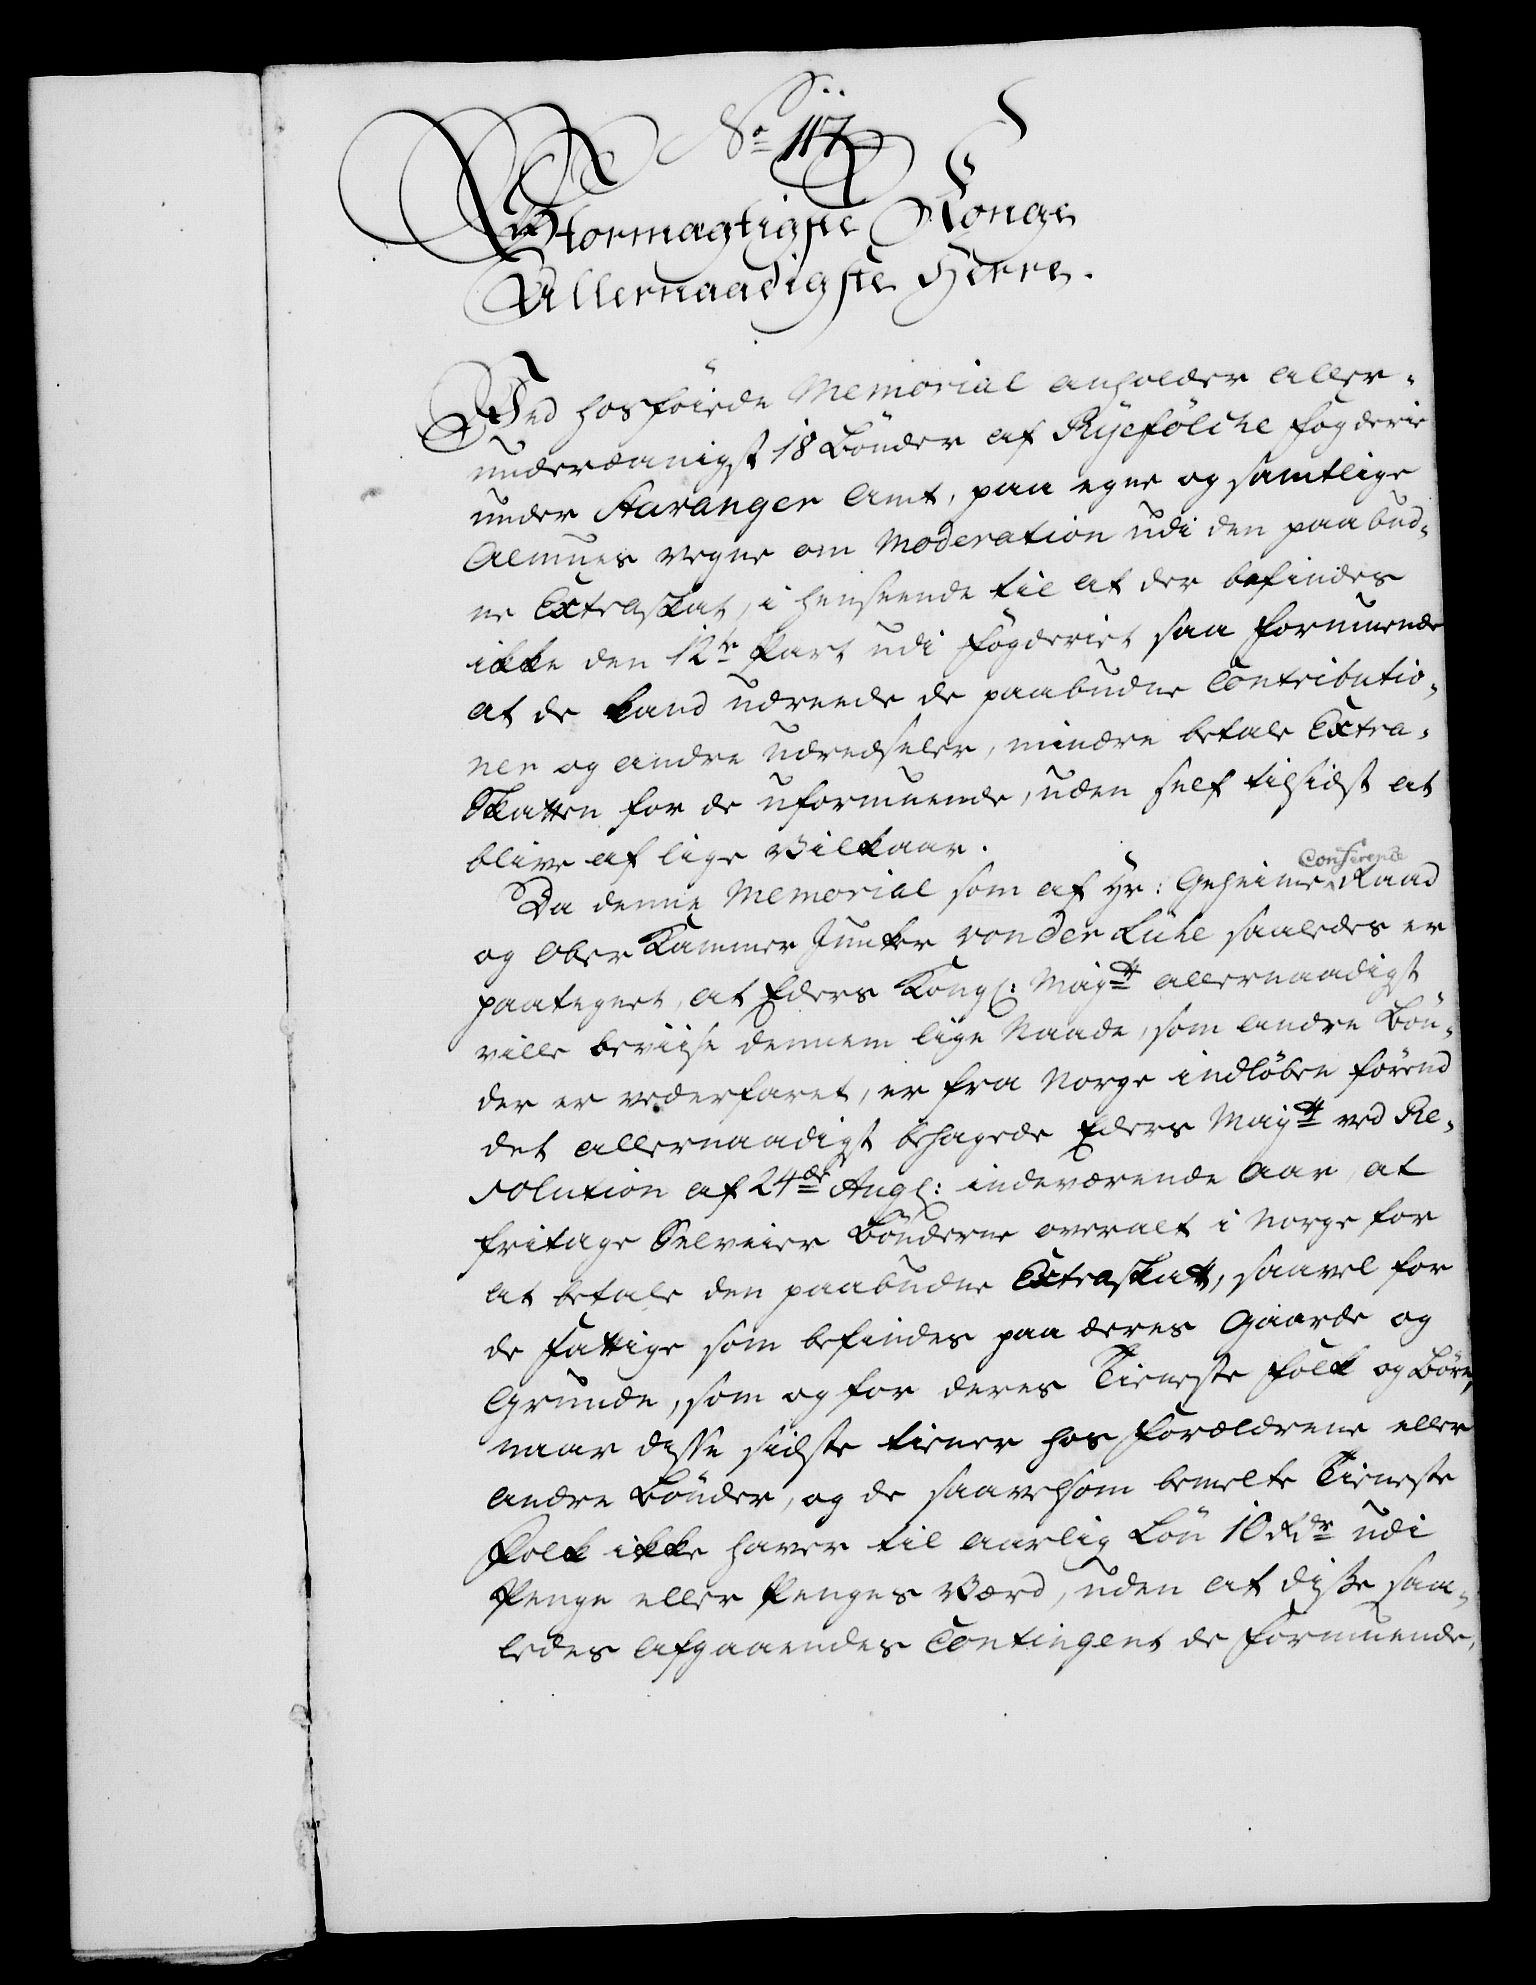 No 117
Stormægtigste Konge
Allernaadigste Herre.
Ved hosföiede Memorial anholder aller-
underdanigst 18 Bönder af Ryefölche fogderie
under Stavanger Amt, paa egne og samtlige
Almues vegne om Moderation udi den paabud-
ne Extraskat, i henseende til at der befindes
ikke den 12te Part udi fogderiet saa formuende
at de kand udreede de paabudne Contributio-
ner og andre udredseler, mindre betale Extra-
Skatten for de uformuende, uden self tilsidst at
blive af lige Vilkaar.
Da denne Memorial som af Hr: Geheime Conference Raad
og Ober Kammer Junker von der Lühe saaledes er
paategnet, at Eders Kongl: Maytt allernaadigst
ville beviise dennem lige Naade, som andre Bön-
der er vederfaret, er fra Norge indlöben förend
det allernaadigst behagede Eders Maytt ved Re-
solution af 24de Augl: indeværende Aar, at
fritage Selveier Bönderne overalt i Norge for
at betale den paabudne Extraskatt, saavel for
de Fattige som befindes paa deres Gaarde og
Grunde, som og for deres Tieneste folk og Börn,
naar disse sidste tiener hos Forældrene eller
andre Bönder, og de saavelsom bemelte Tieneste
Folk ikke haver til aarlig Lön 10 Rdr udi
Penge eller Penges Værd, uden at disse saa-
ledes afgaaendes Contingent de formuende,